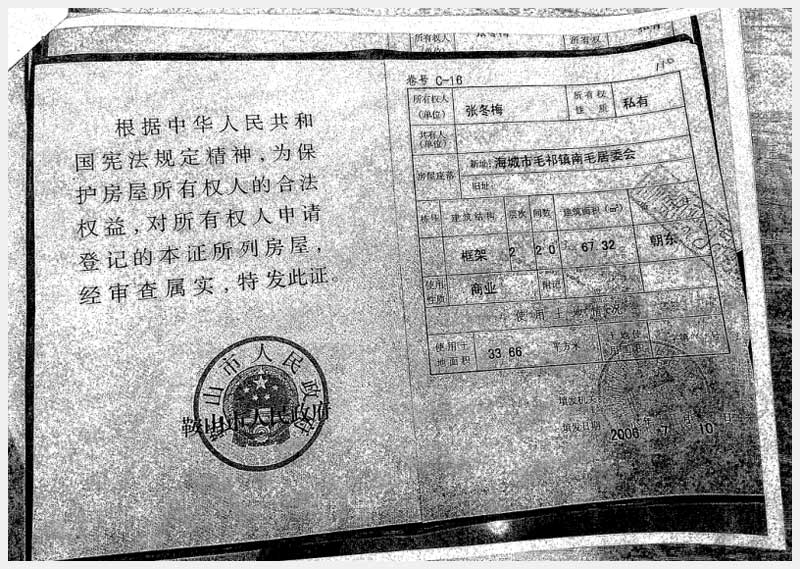 根据中华人民共和
国宪法规定精神,为保
护房屋所有权人的合法
权益,对所有权人申请
登记的本证所列房屋,
经审查属实,特发此证。
鞍山市人民政府
鞍山市人民政府
所有权人
(单位)
所有权
卷号 C-16
所有权人
(单位)
张冬梅
所有权
性质
私有
共有人
(单位)
房屋座落
新址: 海城市毛祁镇南毛居委会
旧址:
栋号 建筑结构 层次 间数 建筑面积(㎡)
框架 2 2 0 67 32 朝东
使用
性质
商业
附记
使用土地情况
使用土
地面积
33 66 平方米
填发机关
填发日期 2006 年 7 10